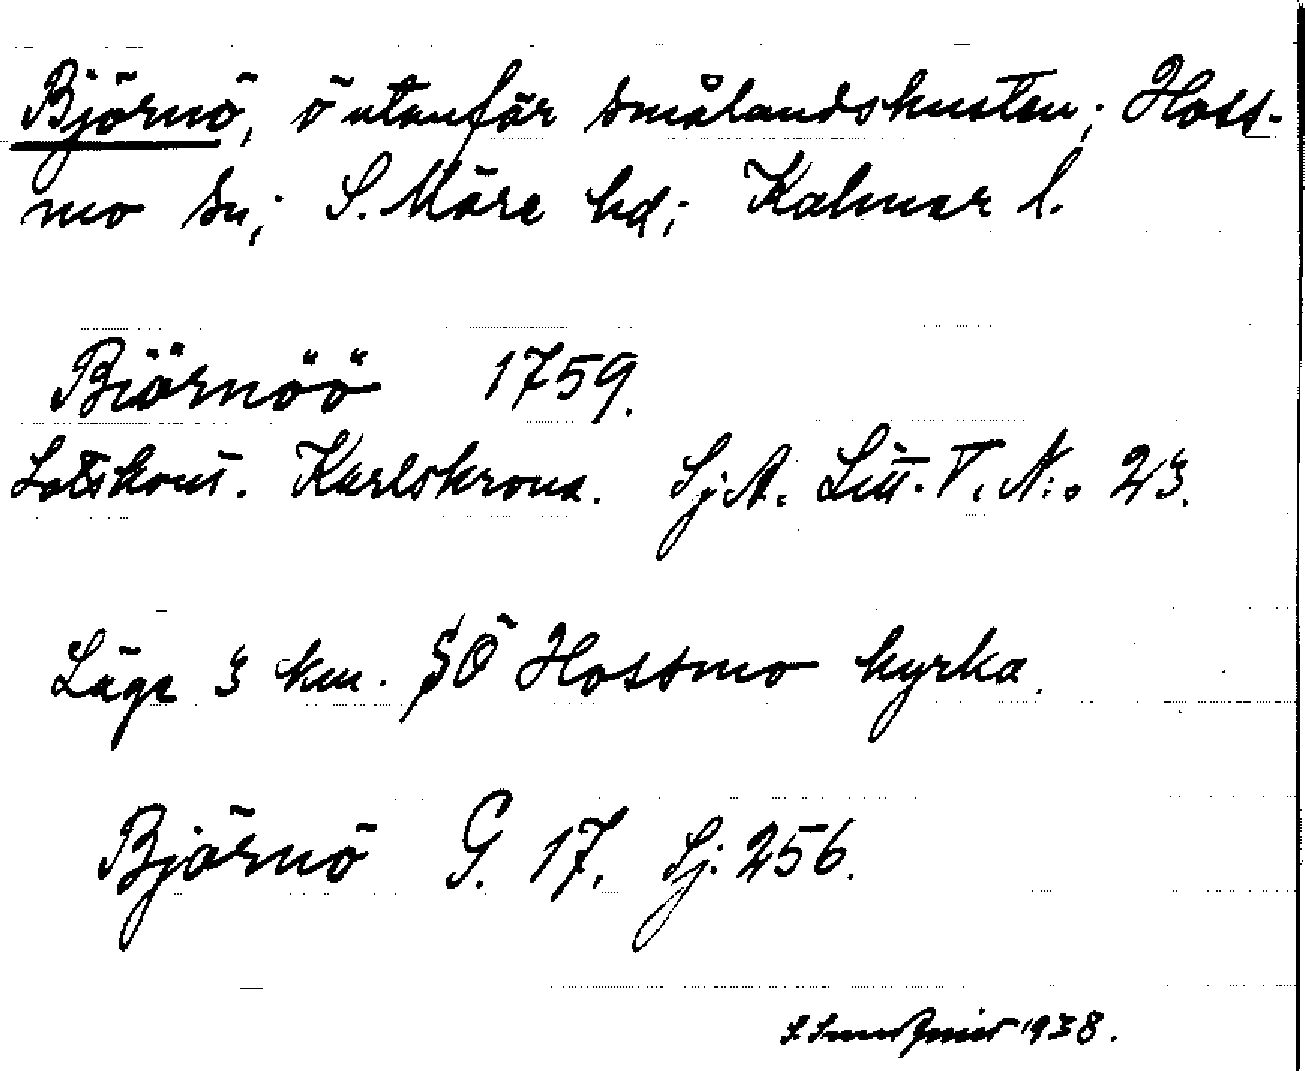 Björnö, ö utanför smålandskusten; Hoss-
mo sn; S. Möre hd; Kalmar l.
Biörnöö 1759.
Lotskont. Karlskrona. Sj.A. Litt. T. N:o 23.
Läge 3 km. SÖ Hossmo kyrka.
Björnö G. 17. Sj. 256.
1938.